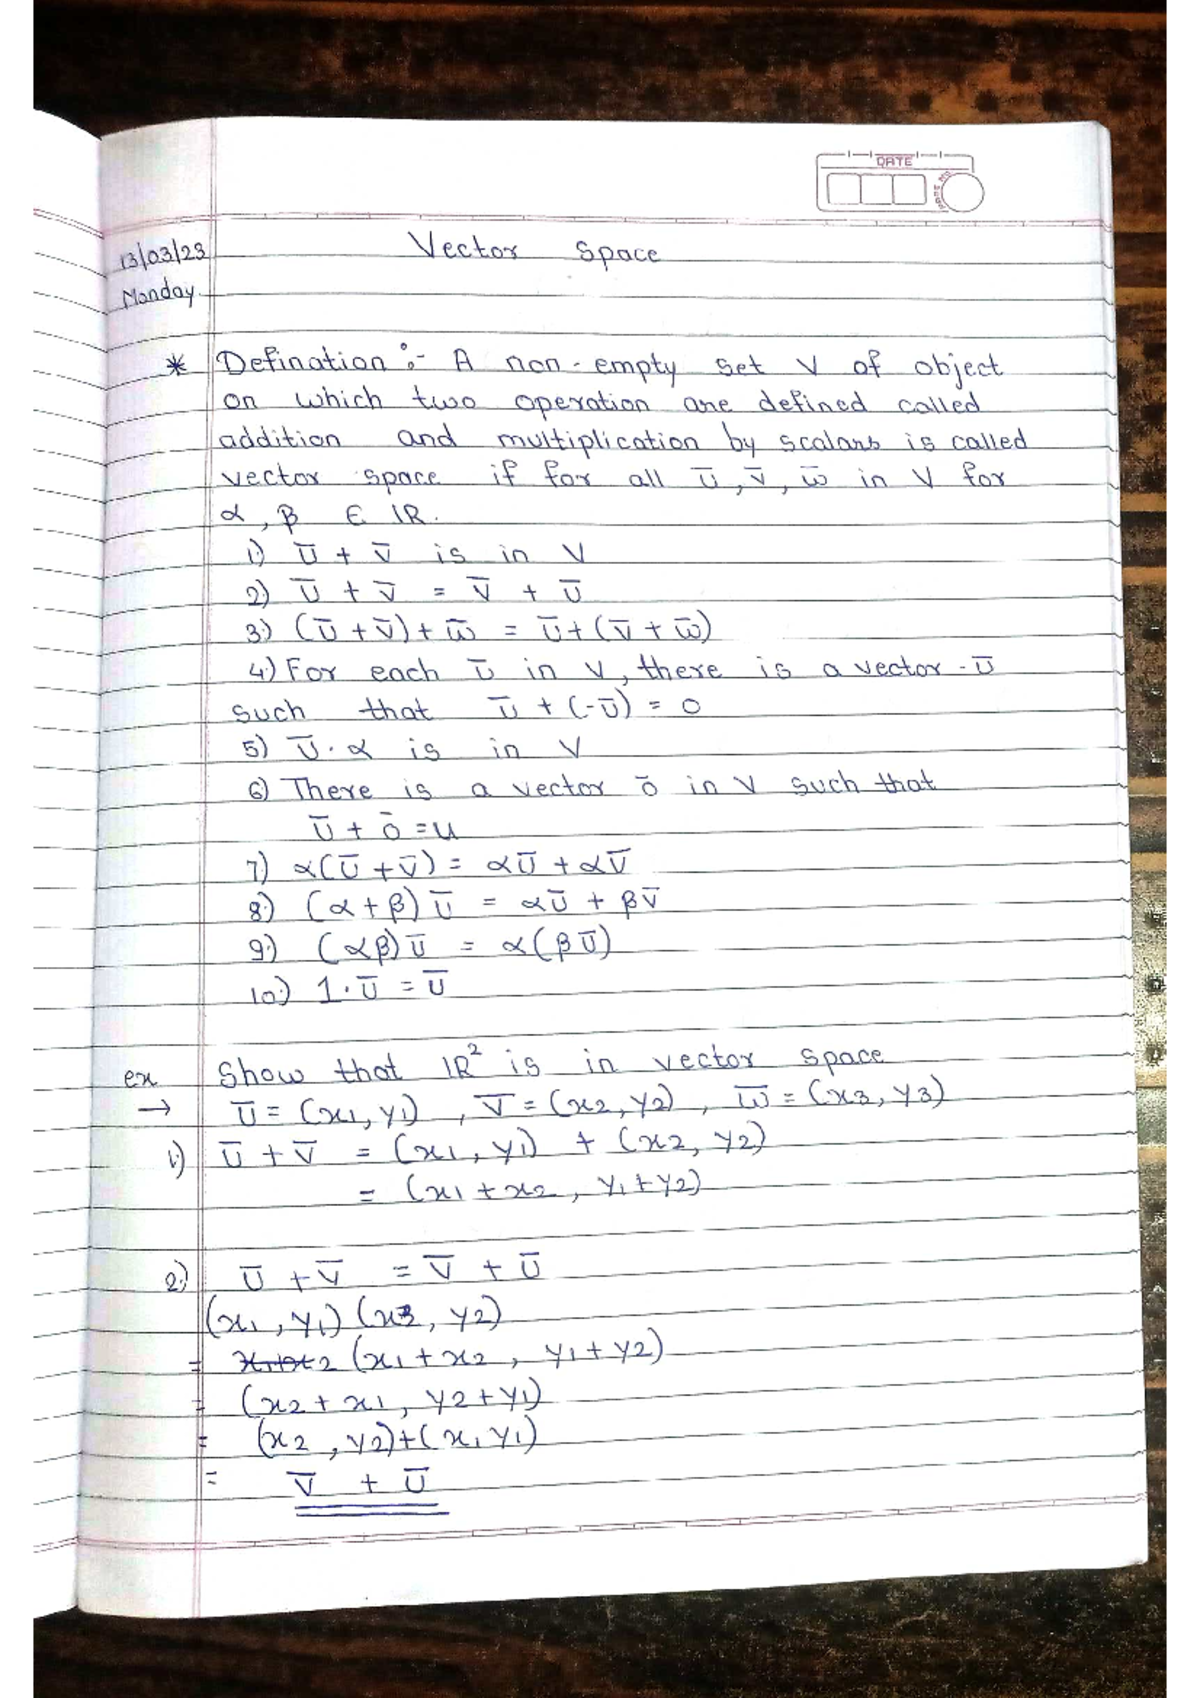 DATE
PAGE NO
13/03/23 Vector Space
Monday
* Defination :- A non-empty set V of object
on which two operation are defined called
addition and multiplication by scalars is called
vector space if for all ū, v̄, w̄ in V for
α, β ∈ IR.
1) ū + v̄ is in V
2) ū + v̄ = v̄ + ū
3) (ū + v̄) + w̄ = ū + (v̄ + w̄)
4) For each ū in V, there is a vector -ū
such that ū + (-ū) = 0
5) ū · α is in V
6) There is a vector ō in V such that
ū + ō = u
7) α(ū + v̄) = αū + αv̄
8) (α + β) ū = αū + βv̄
9) (αβ) ū = α(βū)
10) 1 · ū = ū
ex Show that IR² is in vector space
→ ū = (x1, y1) , v̄ = (x2, y2) , w̄ = (x3, y3)
1) ū + v̄ = (x1, y1) + (x2, y2)
= (x1 + x2, y1 + y2)
2) ū + v̄ = v̄ + ū
(x1, y1) (x2, y2)
= x1+x2 (x1 + x2, y1 + y2)
= (x2 + x1, y2 + y1)
= (x2, y2) + (x, y1)
= v̄ + ū